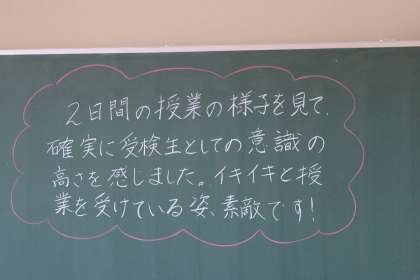 2日間の授業の様子を見て、
確実に受検生としての意識の
高さを感じました。イキイキと授
業を受けている姿、素敵です!